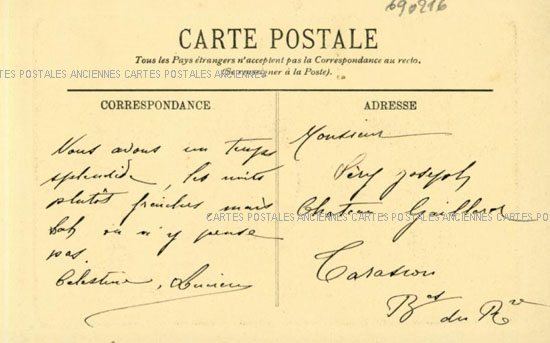 690216
CARTE POSTALE
Tous les Pays étrangers n'acceptent pas la Correspondance au recto.
(Se renseigner à la Poste).
CARTES POSTALES ANCIENNES CARTES POSTALES ANCIENNES
CORRESPONDANCE
Nous avons un temps
splendide, les nuits
plutôt fraiches mais
bah on n'y pense
pas.
Celestine, Lucien
ADRESSE
Monsieur
Joseph
Chateau Gaillard
CARTES POSTALES ANCIENNES CARTES POSTALES ANCIENNES CARTES POSTALES
Tarascon
Bes du Re